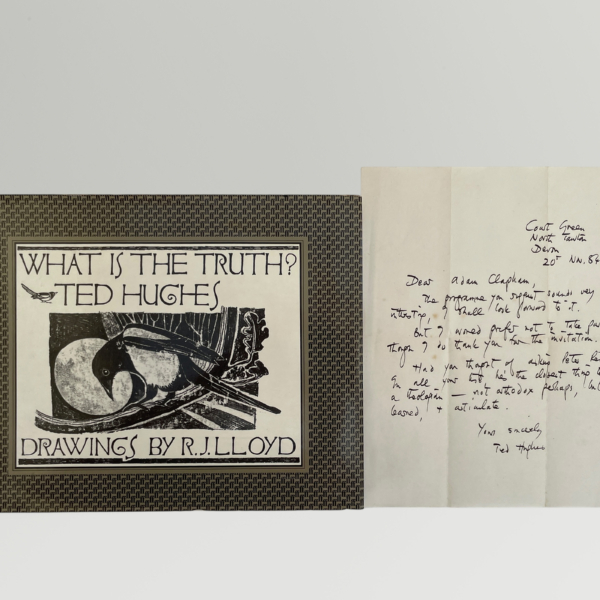 WHAT IS THE TRUTH?
TED HUGHES
DRAWINGS BY R.J.LLOYD
Court Green
North Tawton
Devon
20th Nov. 84
Dear Adam Clapham,
The programme you suggest sounds very
interesting, I shall look forward to it.
But I would prefer not to take par
though I do thank you for the invitation.
Had you thought of asking Peter
In all your list, he's the closest thing t
a theologian — not orthodox perhaps, but
learned, + articulate.
Yours sincerely
Ted Hughes